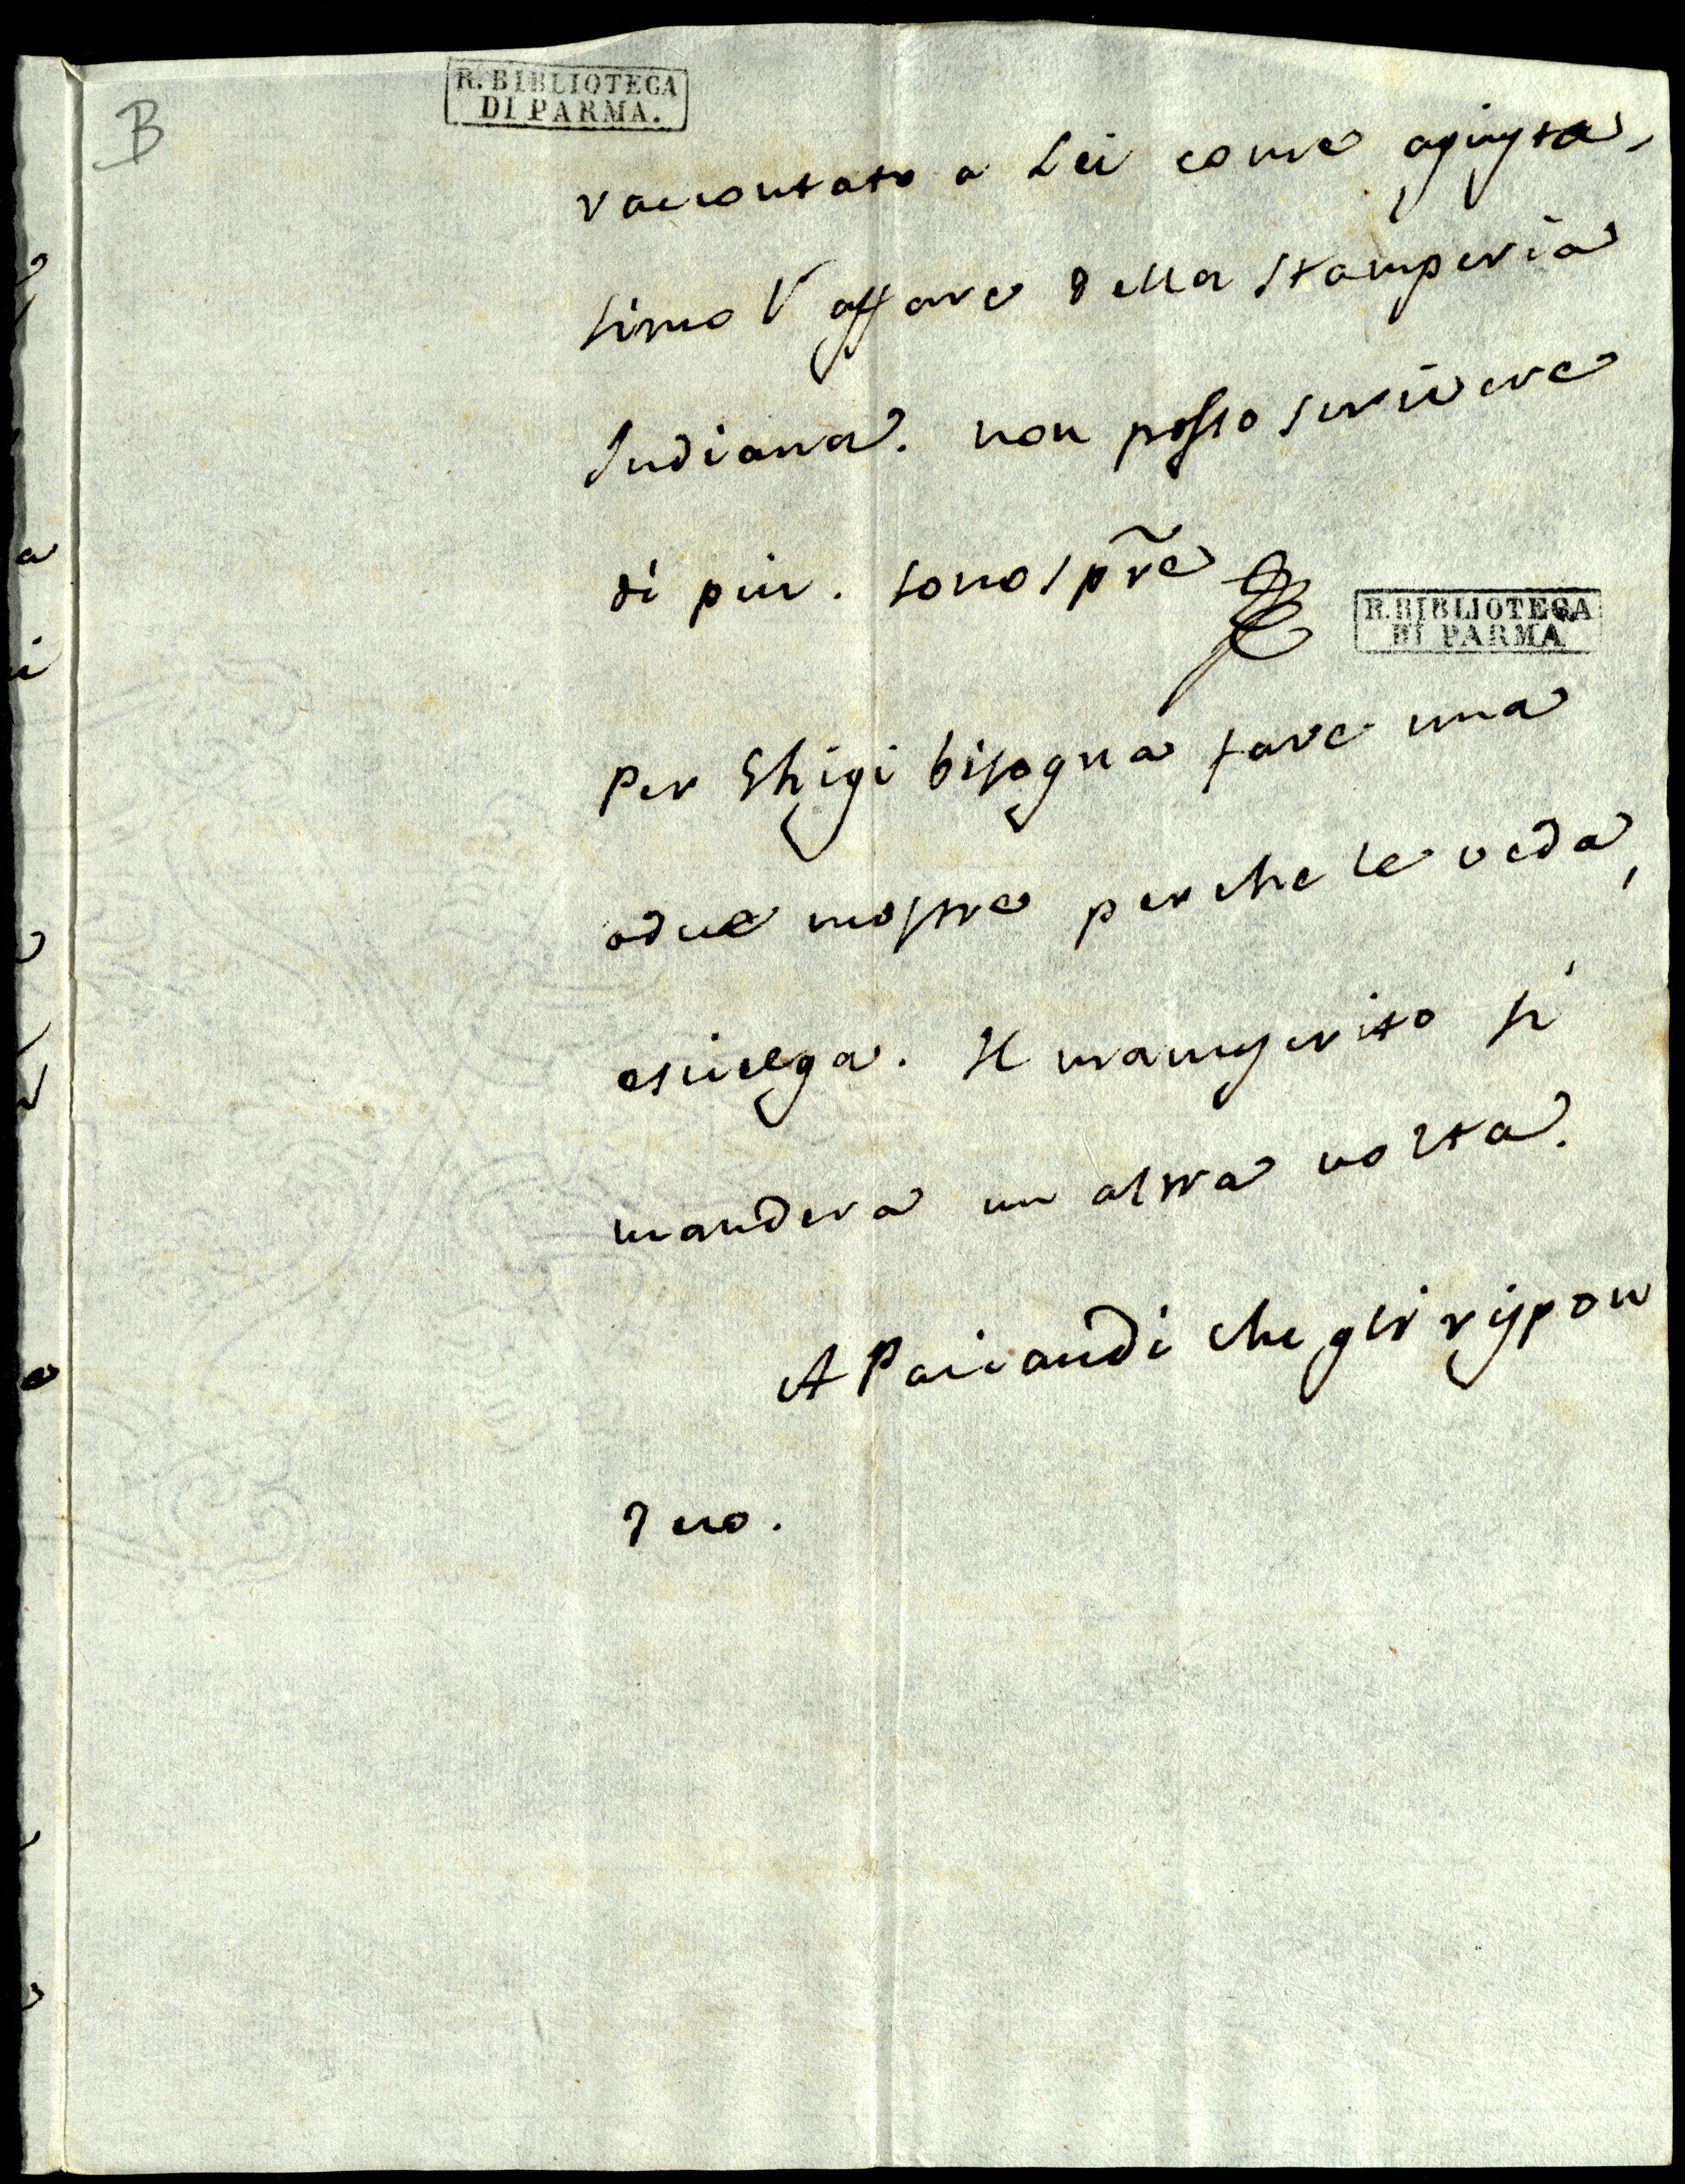 B
R. BIBLIOTECA
DI PARMA.
raccontato a Lei come agiusta,
simo l'affare della stamperia
Indiana. non posso scrivere
di piu. sono spr̃e
R. BIBLIOTECA
DI PARMA
Per Ghigi bisogna fare una
o due mostre perche le veda,
e scielga. Il manuscritto si
mandera un altra volta.
A Paciaudi che gli rispon
dero.